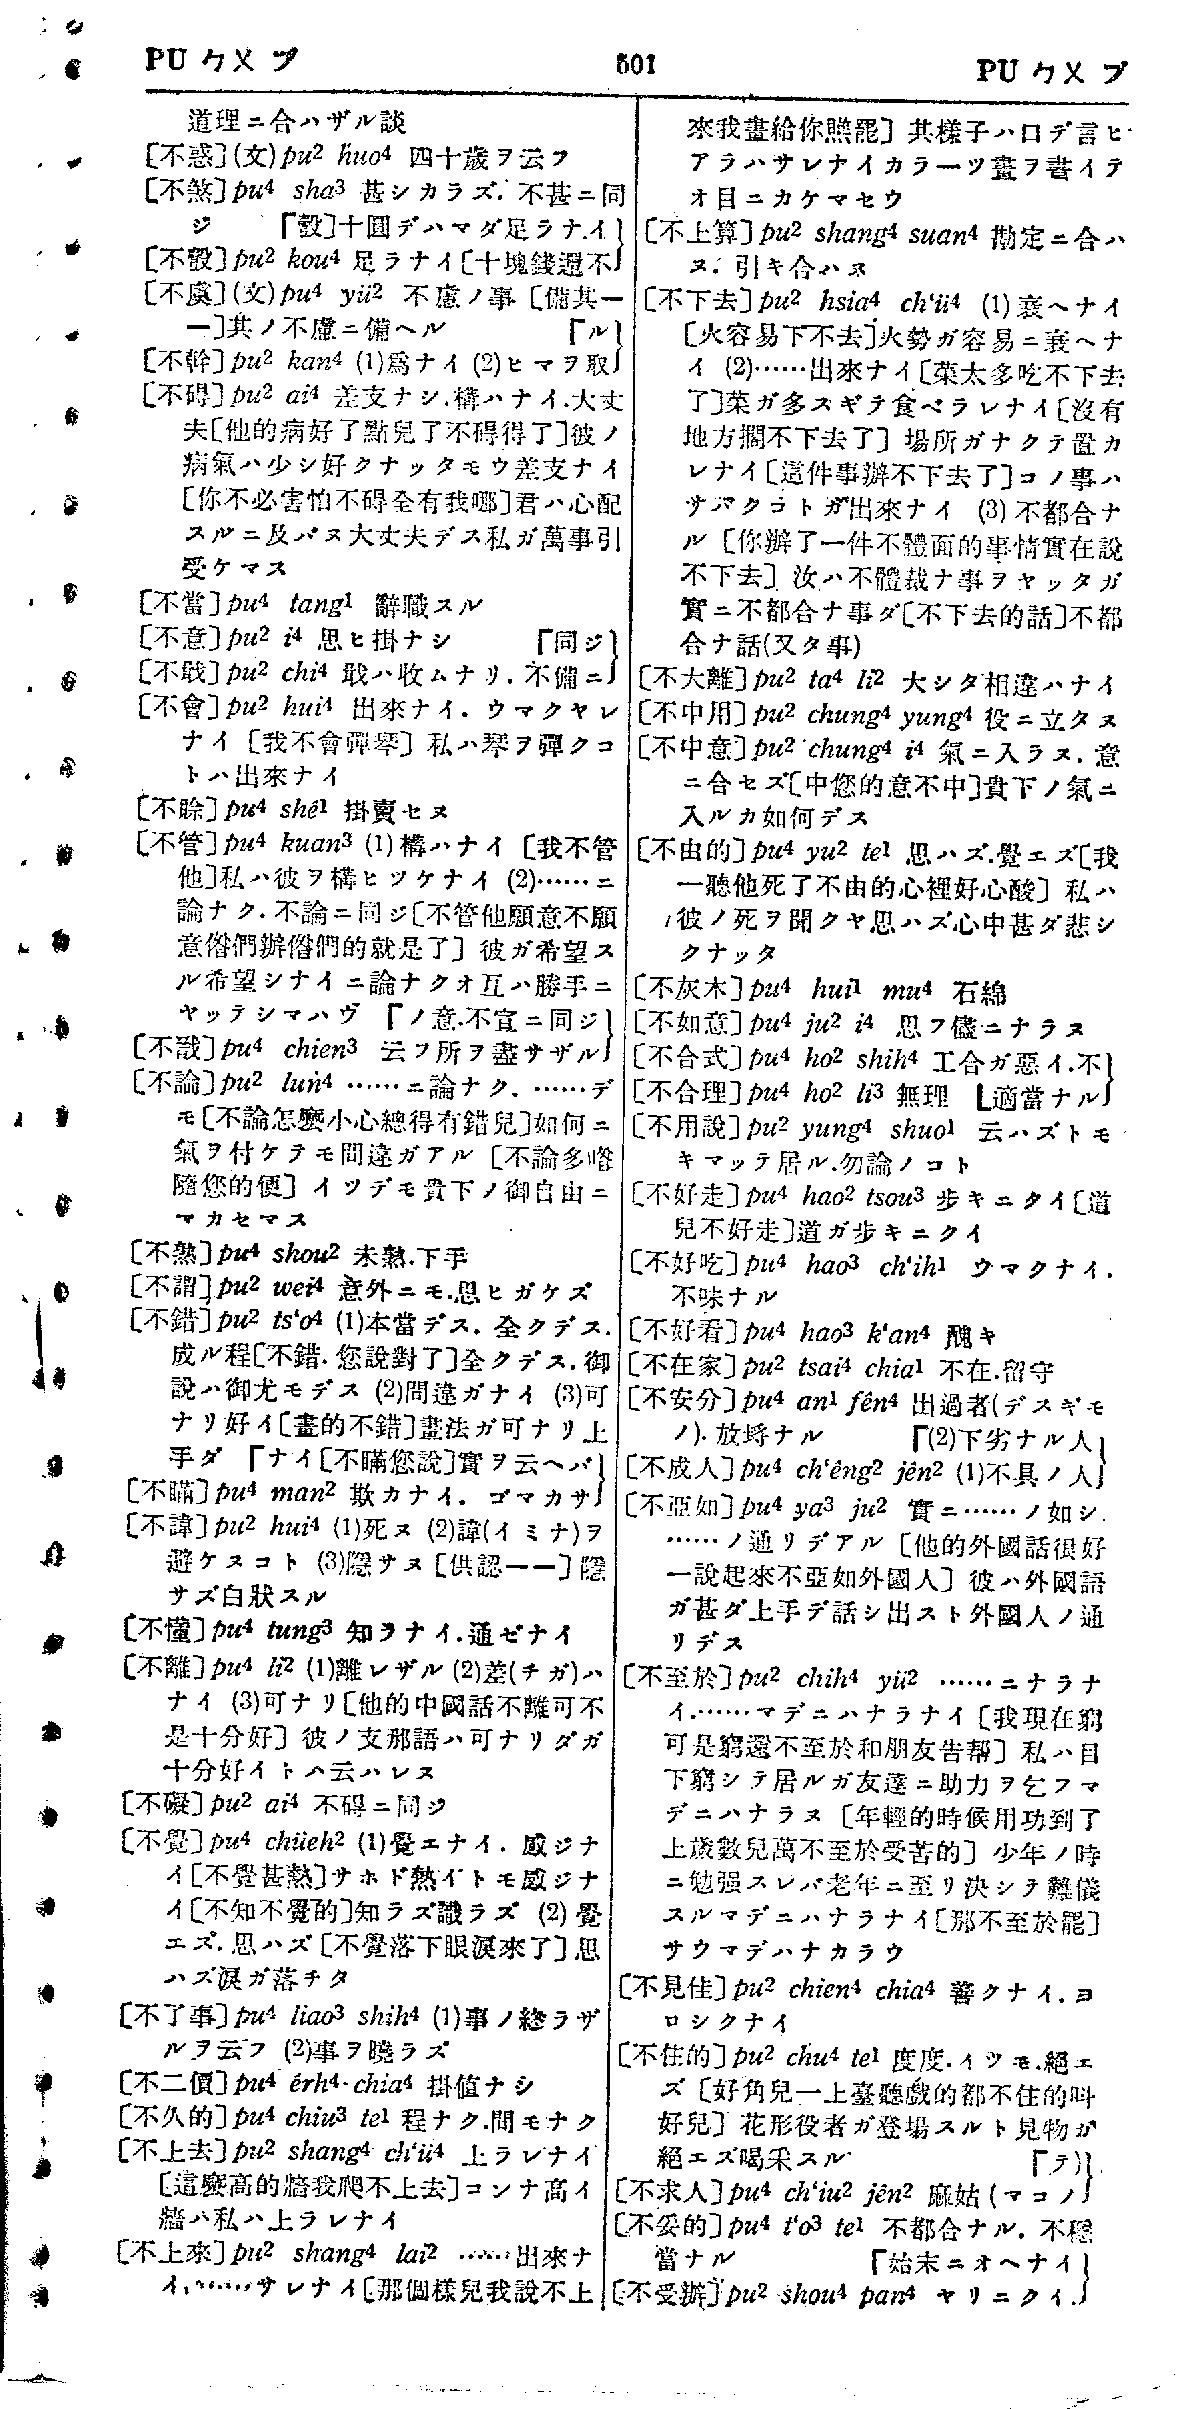 PU ㄅㄨ プ
501
PU ㄅㄨ プ
道理ニ合ハザル談
[不惑](文)pu² huo⁴ 四十歲ヲ云フ
[不煞]pu⁴ sha³ 甚シカラズ. 不甚ニ同
ジ 「彀]十圓デハマダ足ラナイ
[不彀]pu² kou⁴ 足ラナイ[十塊錢還不
[不虞](文)pu⁴ yü² 不慮ノ事 [備其一
一]其ノ不慮ニ備ヘル 「ル
[不幹]pu² kan⁴ (1)爲ナイ (2)ヒマヲ取
[不碍]pu² ai⁴ 差支ナシ.構ハナイ.大丈
夫[他的病好了點兒了不碍得了]彼ノ
病氣ハ少シ好クナッタモウ差支ナイ
[你不必害怕不碍全有我哪]君ハ心配
スルニ及バヌ大丈夫デス私ガ萬事引
受ケマス
[不當]pu⁴ tang¹ 辭職スル
[不意]pu² i⁴ 思ヒ掛ナシ 「同ジ
[不戢]pu² chi⁴ 戢ハ收ムナリ. 不備ニ
[不會]pu² hui⁴ 出來ナイ. ウマクヤレ
ナイ [我不會彈琴] 私ハ琴ヲ彈クコ
トハ出來ナイ
[不賒]pu⁴ shê¹ 掛賣セヌ
[不管]pu⁴ kuan³ (1)構ハナイ [我不管
他]私ハ彼ヲ構ヒツケナイ (2)……ニ
論ナク.不論ニ同ジ[不管他願意不願
意偺們辦偺們的就是了] 彼ガ希望ス
ル希望シナイニ論ナクオ互ハ勝手ニ
ヤッテシマハヴ 「ノ意.不宣ニ同ジ
[不戩]pu⁴ chien³ 云フ所ヲ盡サザル
[不論]pu² lun⁴ ……ニ論ナク. ……デ
モ[不論怎麼小心總得有錯兒]如何ニ
氣ヲ付ケテモ間違ガアル [不論多喒
隨您的便] イツデモ貴下ノ御自由ニ
マカセマス
[不熟]pu⁴ shou² 未熟.下手
[不謂]pu² wei⁴ 意外ニモ.思ヒガケズ
[不錯]pu² ts‘o⁴ (1)本當デス. 全クデス.
成ル程[不錯.您說對了]全クデス.御
說ハ御尤モデス (2)間違ガナイ (3)可
ナリ好イ[畫的不錯]畫法ガ可ナリ上
手ダ 「ナイ[不瞞您說]實ヲ云ヘバ
[不瞞]pu⁴ man² 欺カナイ. ゴマカサ
[不諱]pu² hui⁴ (1)死ヌ (2)諱(イミナ)ヲ
避ケヌコト (3)隱サヌ [供認一一] 隱
サズ白狀スル
[不懂]pu⁴ tung³ 知ラナイ.通ゼナイ
[不離]pu⁴ li² (1)離レザル (2)差(チガ)ハ
ナイ (3)可ナリ[他的中國話不離可不
是十分好] 彼ノ支那語ハ可ナリダガ
十分好イトハ云ハレヌ
[不礙]pu² ai⁴ 不碍ニ同ジ
[不覺]pu⁴ chüeh² (1)覺エナイ. 感ジナ
イ[不覺甚熱]サホド熱イトモ感ジナ
イ[不知不覺的]知ラズ識ラズ (2) 覺
エズ.思ハズ[不覺落下眼淚來了]思
ハズ淚ガ落チタ
[不了事]pu⁴ liao³ shih⁴ (1)事ノ終ラザ
ルヲ云フ (2)事ヲ曉ラズ
[不二價]pu⁴ êrh⁴ chia⁴ 掛値ナシ
[不久的]pu⁴ chiu³ te¹ 程ナク.間モナク
[不上去]pu² shang⁴ ch‘ü⁴ 上ラレナイ
[這麼高的牆我爬不上去]コンナ高イ
牆ハ私ハ上ラレナイ
[不上來]pu² shang⁴ lai² ……出來ナ
イ.……サレナイ[那個樣兒我說不上
來我畫給你照罷] 其樣子ハ口デ言ヒ
アラハサレナイカラ一ツ畫ヲ書イテ
オ目ニカケマセウ
[不上算]pu² shang⁴ suan⁴ 勘定ニ合ハ
ヌ. 引キ合ハヌ
[不下去]pu² hsia⁴ ch‘ü⁴ (1)衰ヘナイ
[火容易下不去]火勢ガ容易ニ衰ヘナ
イ (2)……出來ナイ[菜太多吃不下去
了]菜ガ多スギテ食ベラレナイ[沒有
地方擱不下去了] 場所ガナクテ置カ
レナイ[這件事辦不下去了]コノ事ハ
サバクコトガ出來ナイ (3) 不都合ナ
ル [你辦了一件不體面的事情實在說
不下去] 汝ハ不體裁ナ事ヲヤッタガ
實ニ不都合ナ事ダ[不下去的話]不都
合ナ話(又タ事)
[不大離]pu² ta⁴ li² 大シタ相違ハナイ
[不中用]pu² chung⁴ yung⁴ 役ニ立タヌ
[不中意]pu² chung⁴ i⁴ 氣ニ入ラヌ. 意
ニ合セズ[中您的意不中]貴下ノ氣ニ
入ルカ如何デス
[不由的]pu⁴ yu² te¹ 思ハズ.覺エズ[我
一聽他死了不由的心裡好心酸] 私ハ
彼ノ死ヲ聞クヤ思ハズ心中甚ダ悲シ
クナッタ
[不灰木]pu⁴ hui¹ mu⁴ 石綿
[不如意]pu⁴ ju² i⁴ 思フ儘ニナラヌ
[不合式]pu⁴ ho² shih⁴ 工合ガ惡イ.不
[不合理]pu⁴ ho² li³ 無理 └適當ナル
[不用說]pu² yung⁴ shuo¹ 云ハズトモ
キマッテ居ル.勿論ノコト
[不好走]pu⁴ hao² tsou³ 步キニクイ[道
兒不好走]道ガ步キニクイ
[不好吃]pu⁴ hao³ ch‘ih¹ ウマクナイ.
不味ナル
[不好看]pu⁴ hao³ k‘an⁴ 醜キ
[不在家]pu² tsai⁴ chia¹ 不在.留守
[不安分]pu⁴ an¹ fên⁴ 出過者(デスギモ
ノ). 放埓ナル 「(2)下劣ナル人
[不成人]pu⁴ ch‘êng² jên² (1)不具ノ人
[不亞如]pu⁴ ya³ ju² 實ニ……ノ如シ.
……ノ通リデアル [他的外國話很好
一說起來不亞如外國人] 彼ハ外國語
ガ甚ダ上手デ話シ出スト外國人ノ通
リデス
[不至於]pu² chih⁴ yü² ……ニナラナ
イ.……マデニハナラナイ [我現在窮
可是窮還不至於和朋友告幇] 私ハ目
下窮シテ居ルガ友達ニ助力ヲ乞フマ
デニハナラヌ [年輕的時候用功到了
上歲數兒萬不至於受苦的] 少年ノ時
ニ勉强スレバ老年ニ至リ決シテ難儀
スルマデニハナラナイ[那不至於罷]
サウマデハナカラウ
[不見佳]pu² chien⁴ chia⁴ 善クナイ.ヨ
ロシクナイ
[不住的]pu² chu⁴ te¹ 度度.イツモ.絕エ
ズ [好角兒一上臺聽戲的都不住的叫
好兒] 花形役者ガ登場スルト見物ガ
絕エズ喝采スル 「テ)
[不求人]pu⁴ ch‘iu² jên² 麻姑(マコノ
[不妥的]pu⁴ t‘o³ te¹ 不都合ナル. 不穩
當ナル 「始末ニオヘナイ
[不受辦]pu² shou⁴ pan⁴ ヤリニクイ.